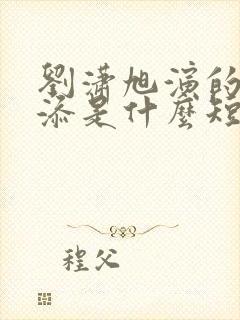 劉瀟旭演的
添是什麼短
程父